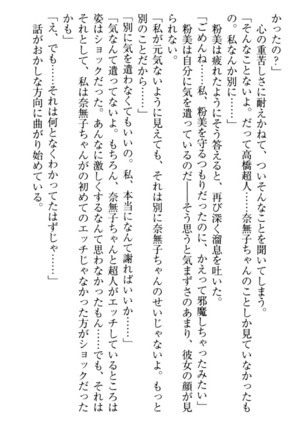 かったの？
　心の重苦しさに耐えかねて、ついそんなことを聞いてしまう。
「そんなことないよ。だって高橋超人……奈無子ちゃんのことしか見ていなかったもの。私なんか別に……」
　粉美は疲れたようにそう答えると、再び深く溜息を吐いた。
「ごめんね……私、粉美を守るつもりだったのに、かえって邪魔しちゃったみたい」
　粉美は自分に気を遣っているのだ――そう思うと気まずさのあまり、彼女の顔が見られない。
「私が元気ないように見えても、それは別に奈無子ちゃんのせいじゃないよ。もっと別のことだから……」
「別に気を遣わなくてもいいの。私、本当になんて謝ればいいか……」
「気なんて遣ってないよ。もちろん、奈無子ちゃんと超人がエッチしているところは姿はショックだった。あんなに激しくするなんて思わなかったもん……でも、それは
それとして、私は奈無子ちゃんが初めてのエッチじゃなかった方がショックだったかも」
「え、でも……それは何となくわかってたはずじゃ……」
　話がおかしな方向に曲がり始めている。